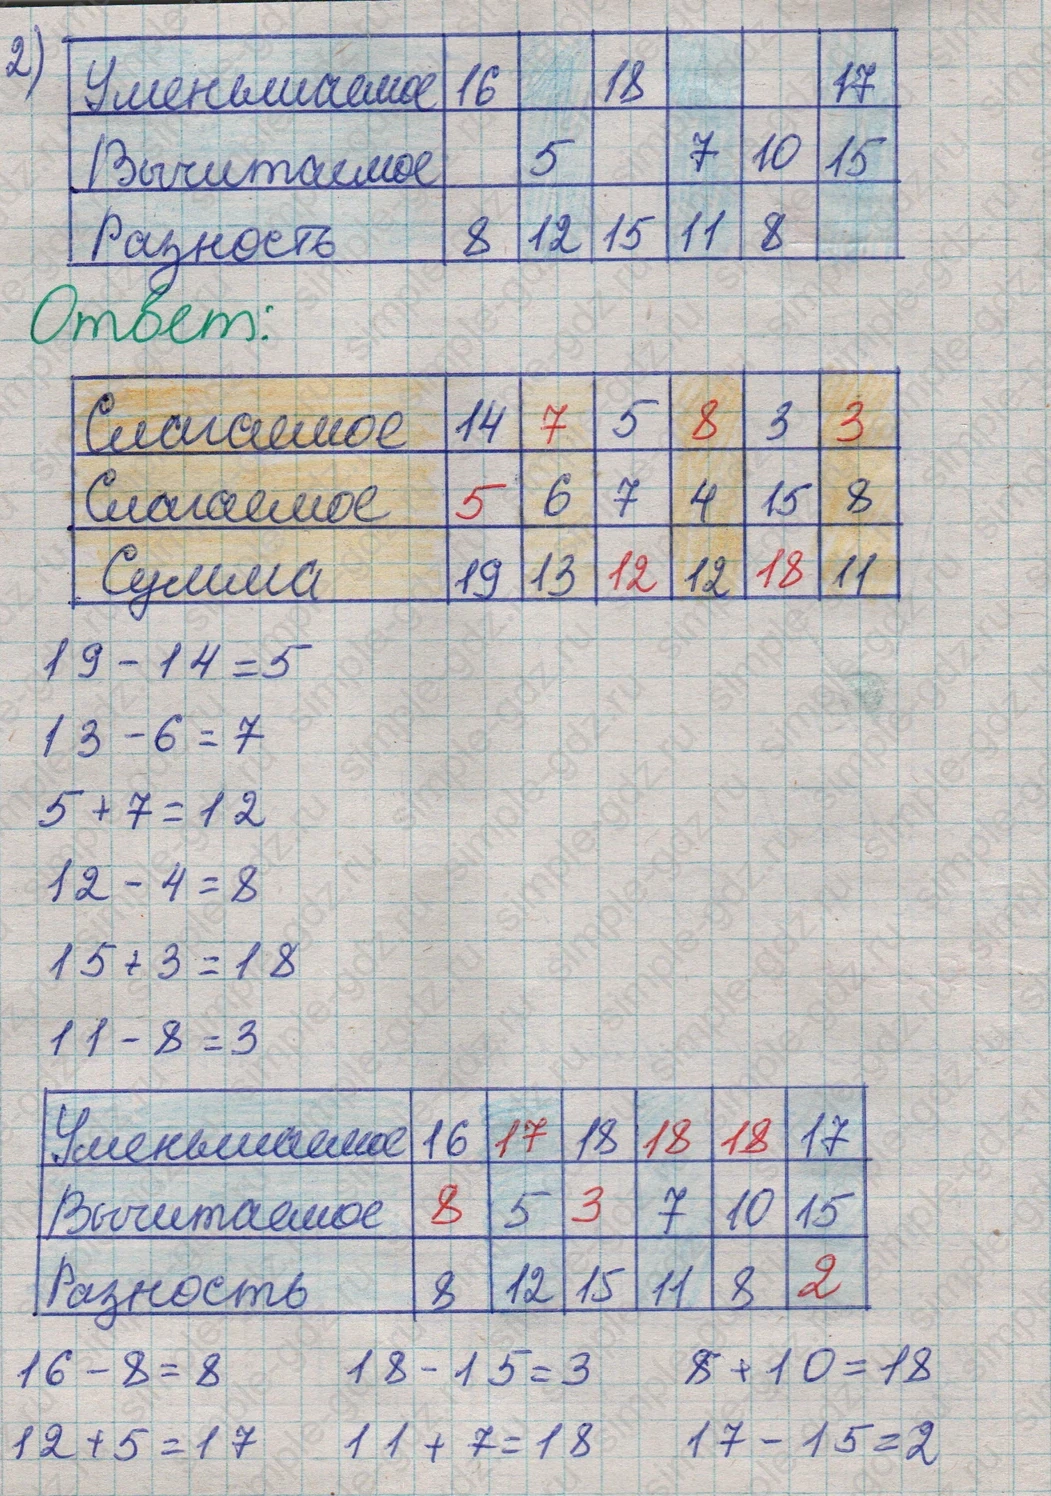 2)
Уменьшаемое 16 18 17
Вычитаемое 5 7 10 15
Разность 8 12 15 11 8
Ответ:
Слагаемое 14 7 5 8 3 3
Слагаемое 5 6 7 4 15 8
Сумма 19 13 12 12 18 11
19 - 14 = 5
13 - 6 = 7
5 + 7 = 12
12 - 4 = 8
15 + 3 = 18
11 - 8 = 3
Уменьшаемое 16 17 18 18 18 17
Вычитаемое 8 5 3 7 10 15
Разность 8 12 15 11 8 2
16 - 8 = 8 18 - 15 = 3 8 + 10 = 18
12 + 5 = 17 11 + 7 = 18 17 - 15 = 2
simple-gdz.ru